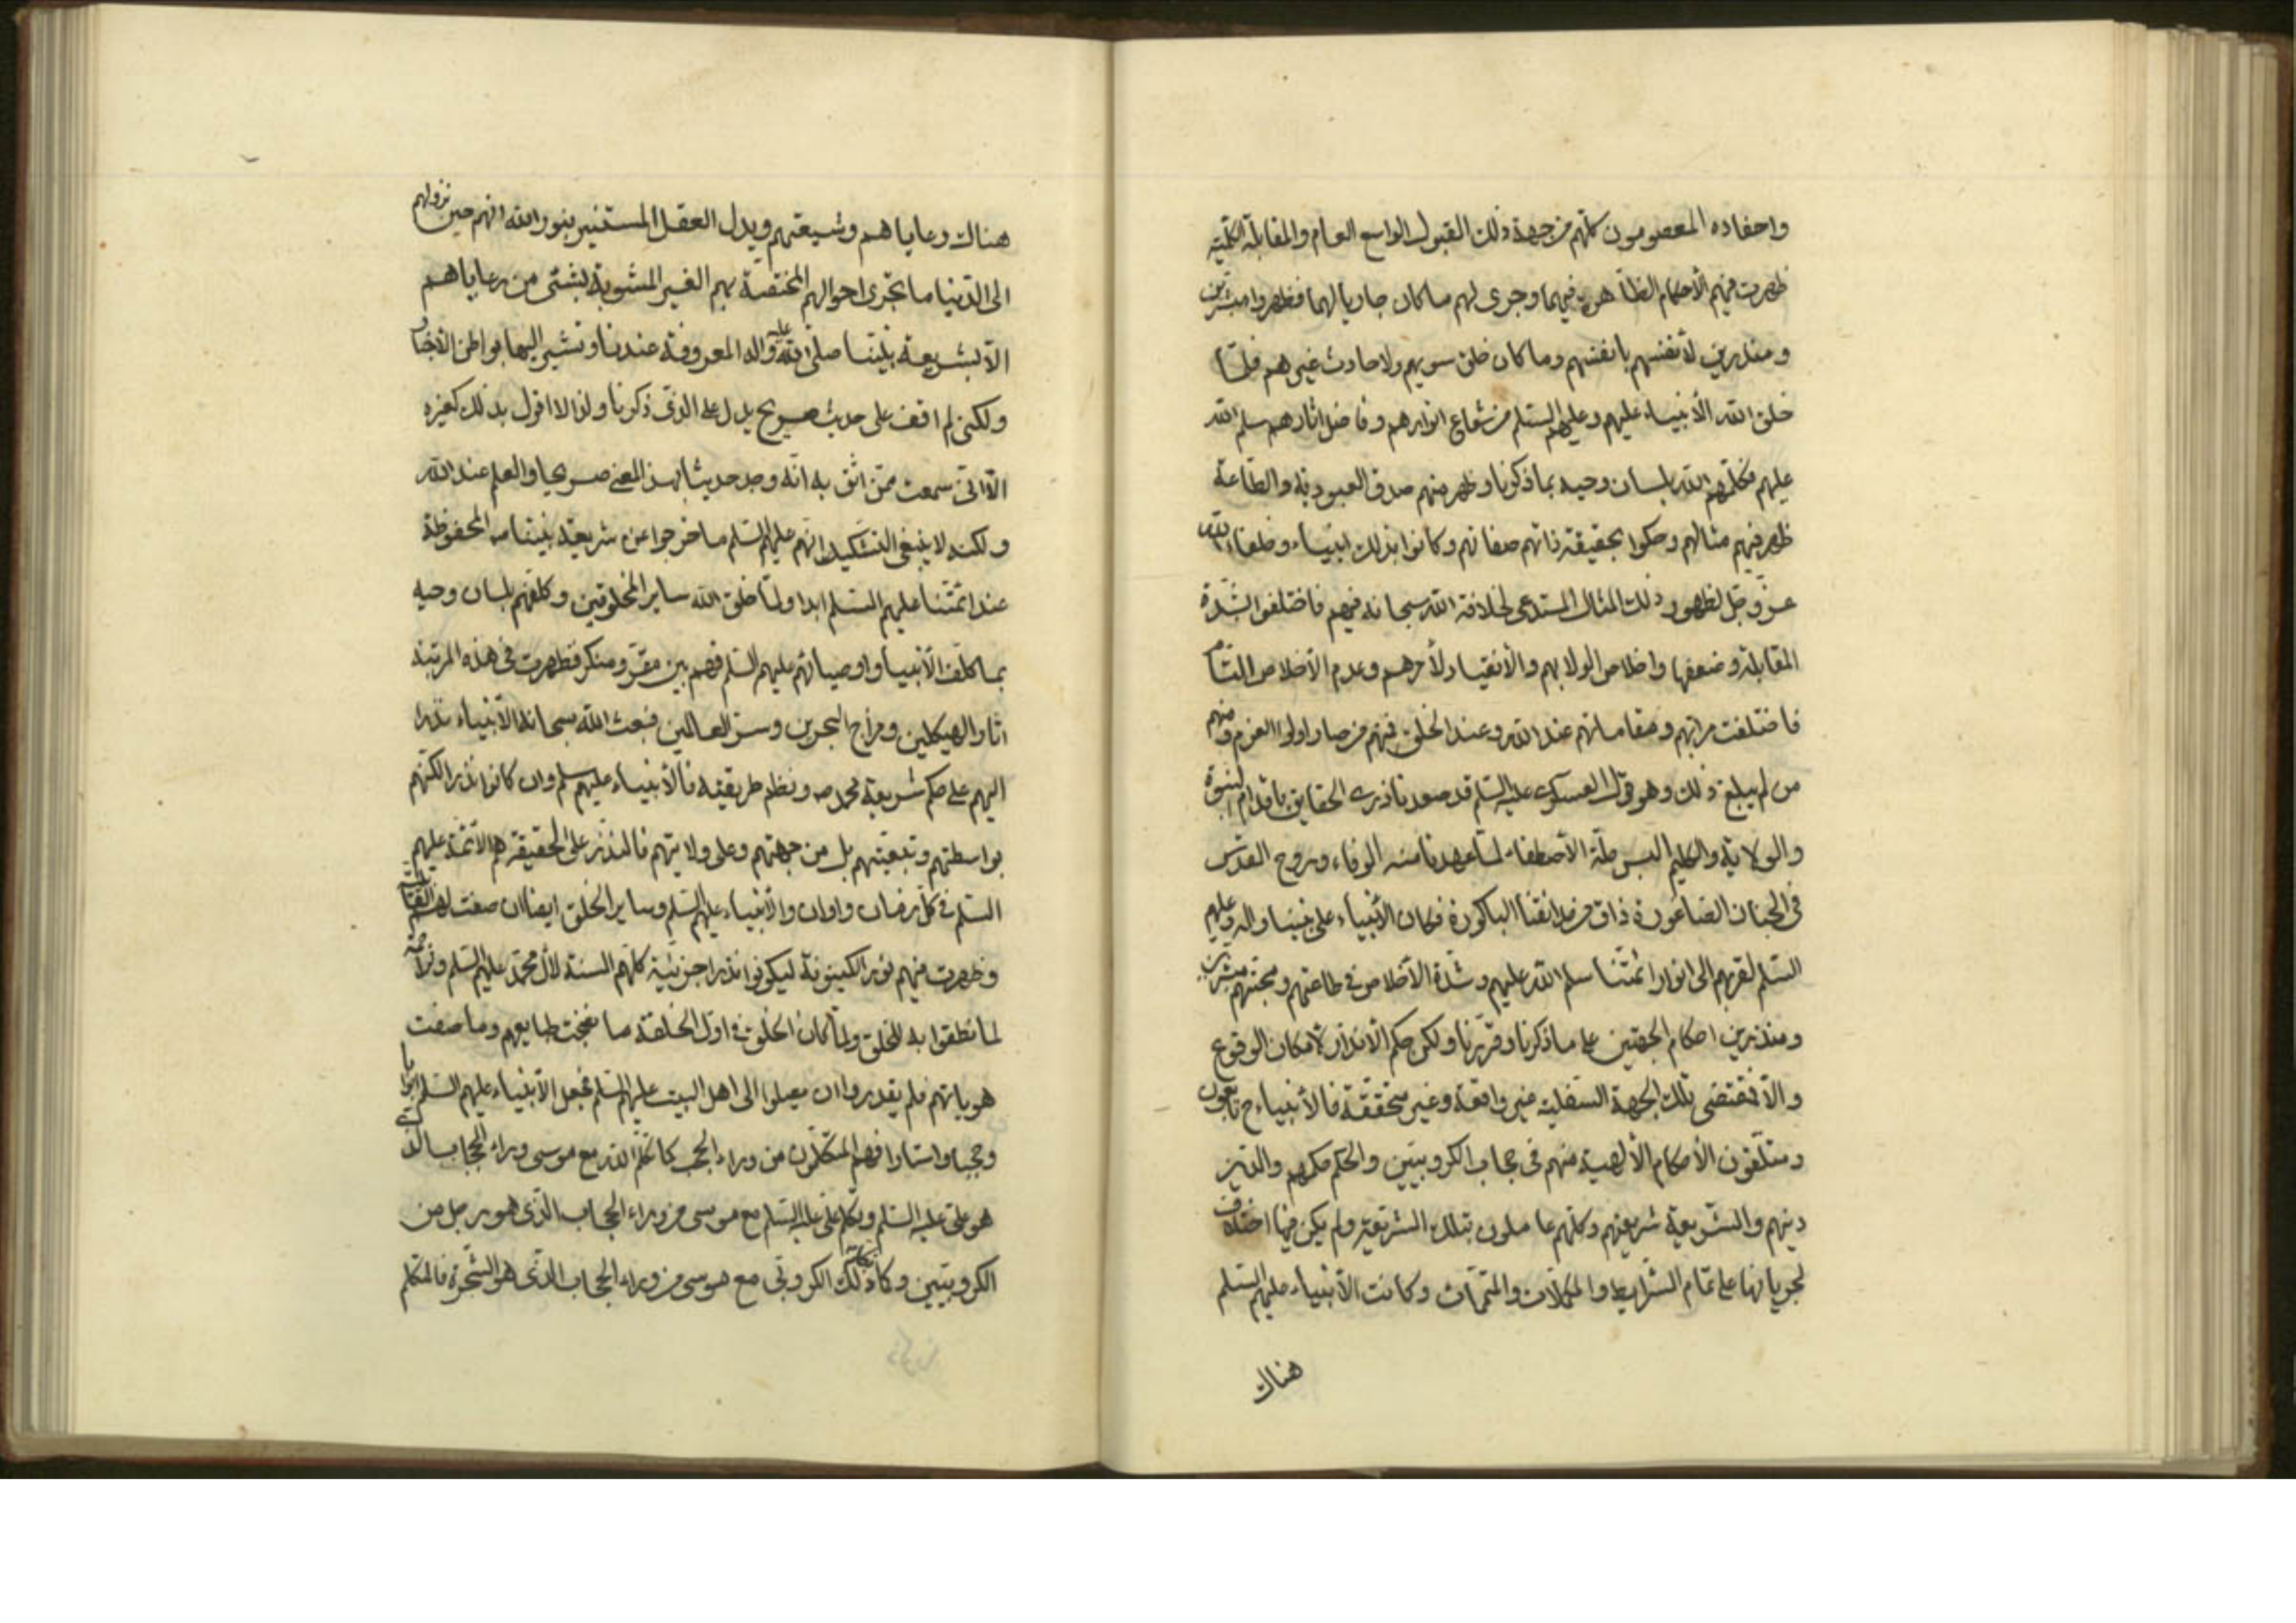 واحفاده المعصومون كلّهم من جهة ذلك القبول الواسع العام والمقابلة الكلّية
ظهرت فيهم الأحكام الظاهرة فيهما وجرى لهم ما كان جاريا لهما فظهروا مبشّرين
ومنذرين لأنفسهم بانفسهم وما كان خلق سويهم ولا حادث غيرهم فلمّا
خلق الله الأنبياء عليهم وعليهم السّلم من شعاع انوارهم وفاضل اثارهم سلم الله
عليهم فكلّمهم الله بلسان وحيه بما ذكرنا وظهر منهم صدق العبودية والطّاعة
ظهر فيهم مثالهم وحكوا بحقيقة ذاتهم صفاتهم وكانوا بذلك انبياء وخلفاء الله
عزّ وجلّ لظهور ذلك المثال المستدعى لخلافة الله سبحانه فيهم فاختلفوا بشدّة
المقابلة وضعفها واخلاص الولا بهم والأنقياد لأمرهم وعدم الأخلاص التّام
فاختلفت مراتبهم ومقاماتهم عند الله وعند الخلق فمنهم من صار اولى العزم ومنهم
من لم يبلغ ذلك وهو قول العسكرى عليه السّلم قد صعدنا ذرى الحقايق باقدام النبوّة
والولاية والكليم البس حلّة الأصطفاء لمّا عهدنا منه الوفاء وروح القدس
فى الجنان الصّاغورة ذاق من حدائقنا الباكورة فكان الأنبياء على نبينا واله وعليهم
السّلم لقربهم الى انوار ائمّتنا سلم الله عليهم وشدّة الأخلاص فى طاعتهم ومحبّتهم مبشرين
ومنذرين احكام الجهتين على ما ذكرنا وقرّرنا ولكن حكم الأنذار لأمكان الوقوع
والّا فمقتضى تلك الجهة السّفلية غير واقعة وغير متحققة فالأنبياء ح تابعون
ومتلّقون الأحكام الألهية منهم فى حجاب الكروبيّين والحكم حكمهم والدّين
دينهم والشّريعة شريعتهم وكلّهم عاملون بتلك الشّريعة ولم يكن فيها اختلاف
لجريانها على تمام الشّرايط والمكمّلات والمتمّمات وكانت الأنبياء عليهم السّلم
هناك
هناك رعاياهم وشيعتهم ويدل العقل المستنير بنور الله انهم حين نزولهم
الى الدّنيا ما تجرى احوالهم المختصّة بهم الغير المشوبة بشئ من رعاياهم
الّا بشريعة نبيّنا صلى الله عليه واله المعروفة عندنا وتشير اليها بواطن الأخبار
ولكنى لم اقف على حديث صريح يدل على الذى ذكرنا ولذا لا اقول بذلك كغيره
الّا انّى سمعت ممّن اثق به انّه وجد حديثا بهذا المعنى صريحا والعلم عند الله
ولكنه لا ينبغى التشكيك انّهم عليهم السّلم ما خرجوا عن شريعة نبيّنا ص المحفوظة
عند ائمّتنا عليهم السّلم ابدا ولمّا خلق الله ساير المخلوقين وكلّفهم بلسان وحيه
بما كلّف الأنبيا واوصيائهم عليهم السّلم فهم بين مقرّ ومنكر فظهرت فى هذه المرتبة
اثار الهيكلين ومزاج البحرين وسرّ العالمين فبعث الله سبحانه الأنبياء نذرا
اليهم على حكم شريعة محمد ص ونظم طريقته فالأنبياء عليهم سلم وان كانوا نذرا لكنهم
بواسطتهم وتبعيّتهم بل من جهتهم وعلى ولايتهم فالنذر على الحقيقة هم الأئمّة عليهم
السّلم فى كلّ زمان واوان والأنبياء عليهم السّلم وساير الخلق ايضا ان صفت لهم
وظهرت منهم نور الكينونة ليكونوا نذرا جزئية كلّهم السنة لأل محمّد عليهم السّلم
لما نطقوا به للخلق ولمّا كان الخلق فى اوّل الخلقة ما نضجت طبايعهم وما صفت
هوياتهم فلم يقدروا ان يصلوا الى اهل البيت عليهم السّلم فجعل الأنبياء عليهم السّلم ابوابا
وحجبا واستارا فهم المتكلّمون من وراء الحجب كما تكلّم الله مع موسى وراء الحجاب الذى
هو على عليه السّلم وتكلم على عليه السّلم مع موسى من وراء الحجاب الّذى هو رجل من
الكروبيّين وكان ذلك الكروبى مع موسى من وراء الحجاب الّذى هو الشّجرة فالمتكلم